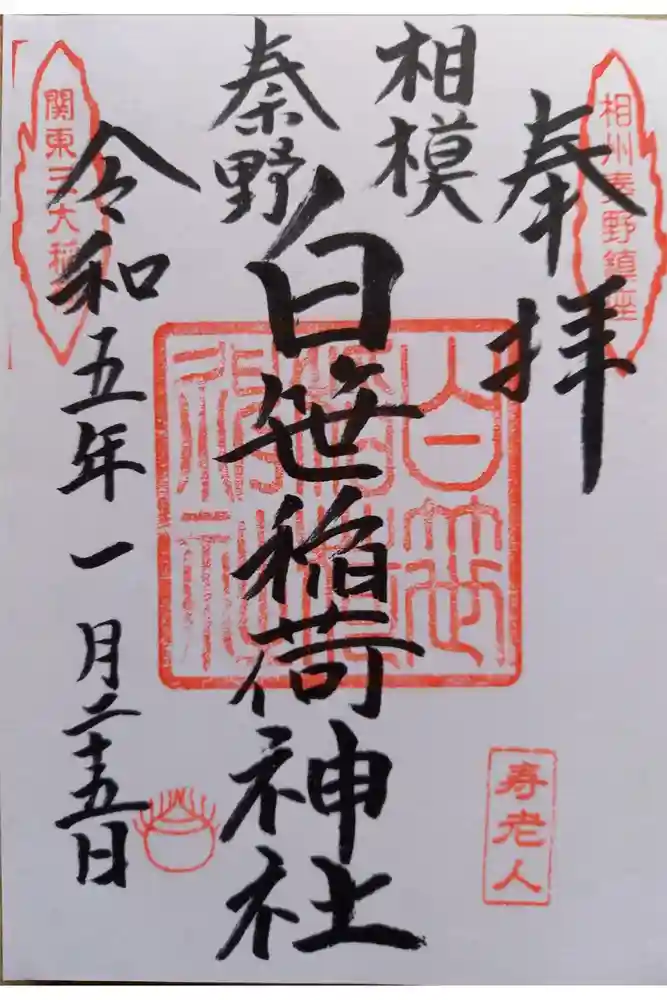 奉拝
相州秦野鎮座
相模
秦野
白笹稲荷神社
白笹稲荷神社
寿老人
関東三大稲荷
令和五年一月二十五日